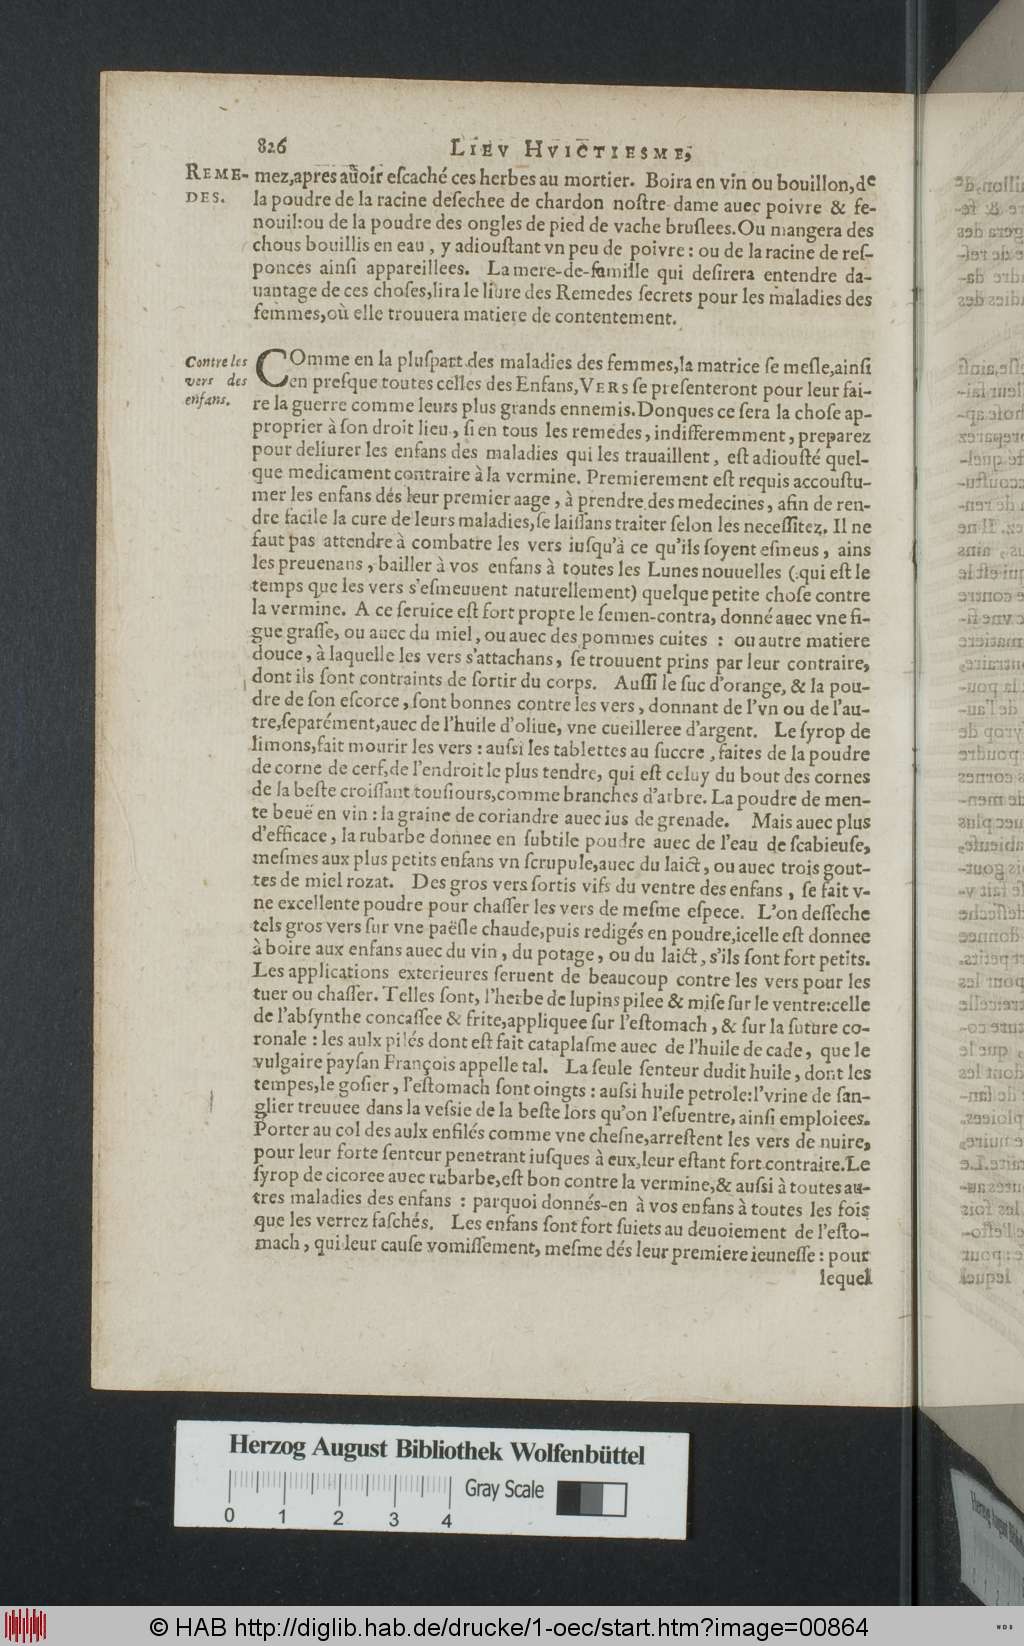 826 LIEV HVICTIESME,
REME- mez,apres auoir eſcaché ces herbes au mortier. Boira en vin ou bouillon,de
DES. la poudre de la racine deſechee de chardon noſtre dame auec poivre & fe-
nouil:ou de la poudre des ongles de pied de vache bruſlees.Ou mangera des
chous bouillis en eau , y adiouſtant vn peu de poivre : ou de la racine de reſ-
ponces ainſi appareillees. La mere-de-famille qui deſirera entendre da-
uantage de ces choſes,lira le liure des Remedes ſecrets pour les maladies des
femmes,où elle trouuera matiere de contentement.
Contre les vers des enfans.
COmme en la pluſpart des maladies des femmes,la matrice ſe meſle,ainſi
en preſque toutes celles des Enfans,VERS ſe preſenteront pour leur fai-
re la guerre comme leurs plus grands ennemis.Donques ce ſera la choſe ap-
proprier à ſon droit lieu , ſi en tous les remedes, indifferemment , preparez
pour deliurer les enfans des maladies qui les trauaillent, eſt adiouſté quel-
que medicament contraire à la vermine. Premierement eſt requis accouſtu-
mer les enfans dés leur premier aage , à prendre des medecines, afin de ren-
dre facile la cure de leurs maladies,ſe laiſſans traiter ſelon les neceſſitez. Il ne
faut pas attendre à combatre les vers iuſqu'à ce qu'ils ſoyent eſmeus, ains
les preuenans , bailler à vos enfans à toutes les Lunes nouuelles (qui eſt le
temps que les vers s'eſmeuuent naturellement) quelque petite choſe contre
la vermine. A ce ſeruice eſt fort propre le ſemen-contra, donné auec vne fi-
gue graſſe, ou auec du miel, ou auec des pommes cuites : ou autre matiere
douce, à laquelle les vers s'attachans, ſe trouuent prins par leur contraire,
dont ils ſont contraints de ſortir du corps. Auſſi le ſuc d'orange, & la pou-
dre de ſon eſcorce , ſont bonnes contre les vers, donnant de l'vn ou de l'au-
tre,ſeparément,auec de l'huile d'oliue, vne cueilleree d'argent. Le ſyrop de
limons,fait mourir les vers : auſsi les tablettes au ſuccre , faites de la poudre
de corne de cerf,de l'endroit le plus tendre, qui eſt celuy du bout des cornes
de la beſte croiſſant touſiours,comme branches d'arbre. La poudre de men-
te beuë en vin : la graine de coriandre auec ius de grenade. Mais auec plus
d'efficace , la rubarbe donnee en ſubtile poudre auec de l'eau de ſcabieuſe,
meſmes aux plus petits enfans vn ſcrupule,auec du laict, ou auec trois gout-
tes de miel rozat. Des gros vers ſortis vifs du ventre des enfans , ſe fait v-
ne excellente poudre pour chaſſer les vers de meſme eſpece. L'on deſſeche
tels gros vers ſur vne paëſle chaude,puis redigés en poudre,icelle eſt donnee
à boire aux enfans auec du vin , du potage, ou du laict, s'ils ſont fort petits.
Les applications exterieures ſeruent de beaucoup contre les vers pour les
tuer ou chaſſer. Telles ſont, l'herbe de lupins pilee & miſe ſur le ventre:celle
de l'abſynthe concaſſee & frite,appliquee ſur l'eſtomach , & ſur la ſuture co-
ronale : les aulx pilés dont eſt fait cataplaſme auec de l'huile de cade, que le
vulgaire payſan François appelle tal. La ſeule ſenteur dudit huile, dont les
tempes,le goſier , l'eſtomach ſont oingts : auſsi huile petrole:l'vrine de ſan-
glier treuuee dans la veſsie de la beſte lors qu'on l'eſuentre, ainſi emploiees.
Porter au col des aulx enfilés comme vne cheſne,arreſtent les vers de nuire,
pour leur forte ſenteur penetrant iuſques à eux,leur eſtant fort contraire.Le
ſyrop de cicoree auec rubarbe,eſt bon contre la vermine,& auſsi à toutes au-
tres maladies des enfans : parquoi donnés-en à vos enfans à toutes les fois
que les verrez faſchés. Les enfans ſont fort ſuiets au deuoiement de l'eſto-
mach , qui leur cauſe vomiſſement, meſme dés leur premiere ieuneſſe : pour
lequel
Herzog August Bibliothek Wolfenbüttel
Gray Scale
0 1 2 3 4
© HAB http://diglib.hab.de/drucke/1-oec/start.htm?image=00864